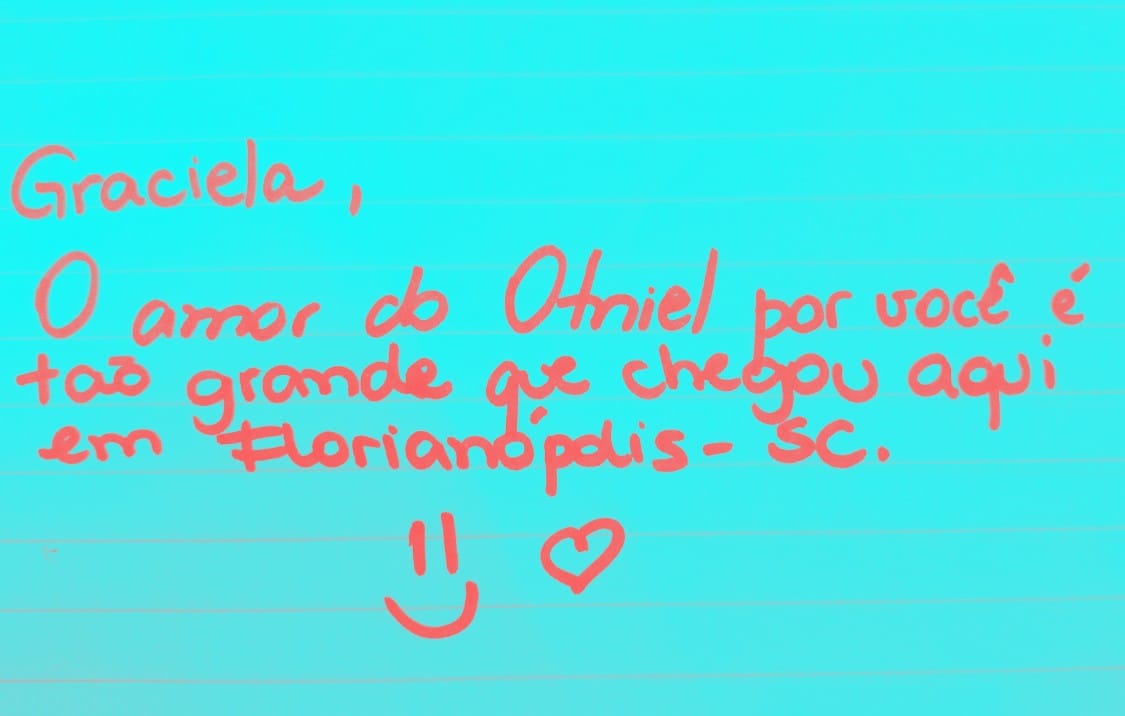 Graciela,
O amor do Otniel por você é
tão grande que chegou aqui
em Florianópolis - SC.